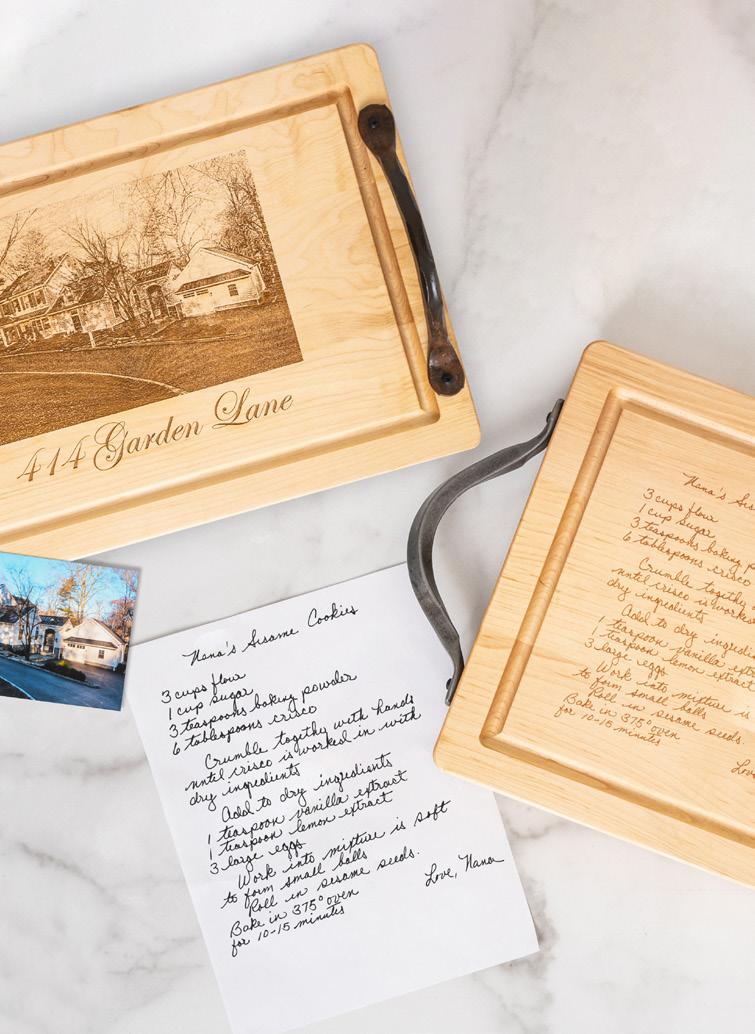 414 Garden Lane
Nana's Sesame Cookies
3 cups flour
1 cup sugar
3 teaspoons baking powder
6 tablespoons crisco
Crumble together with hands
until crisco is worked in with
dry ingredients
Add to dry ingredients
1 teaspoon vanilla extract
1 teaspoon lemon extract
3 large eggs
Work into mixture is soft
to form small balls
Roll in sesame seeds.
Bake in 375° oven
for 10-15 minutes
Love, Nana
Nana's
3 cups flour
1 cup sugar
3 teaspoons baking
6 tablespoons crisco
Crumble
until crisco is
dry ingredients
Add to dry
1 teaspoon vanilla
1 teaspoon lemon
3 large eggs
Work into mixture is
to form small balls
Roll in sesame seeds.
Bake in 375° oven
for 10-15 minutes